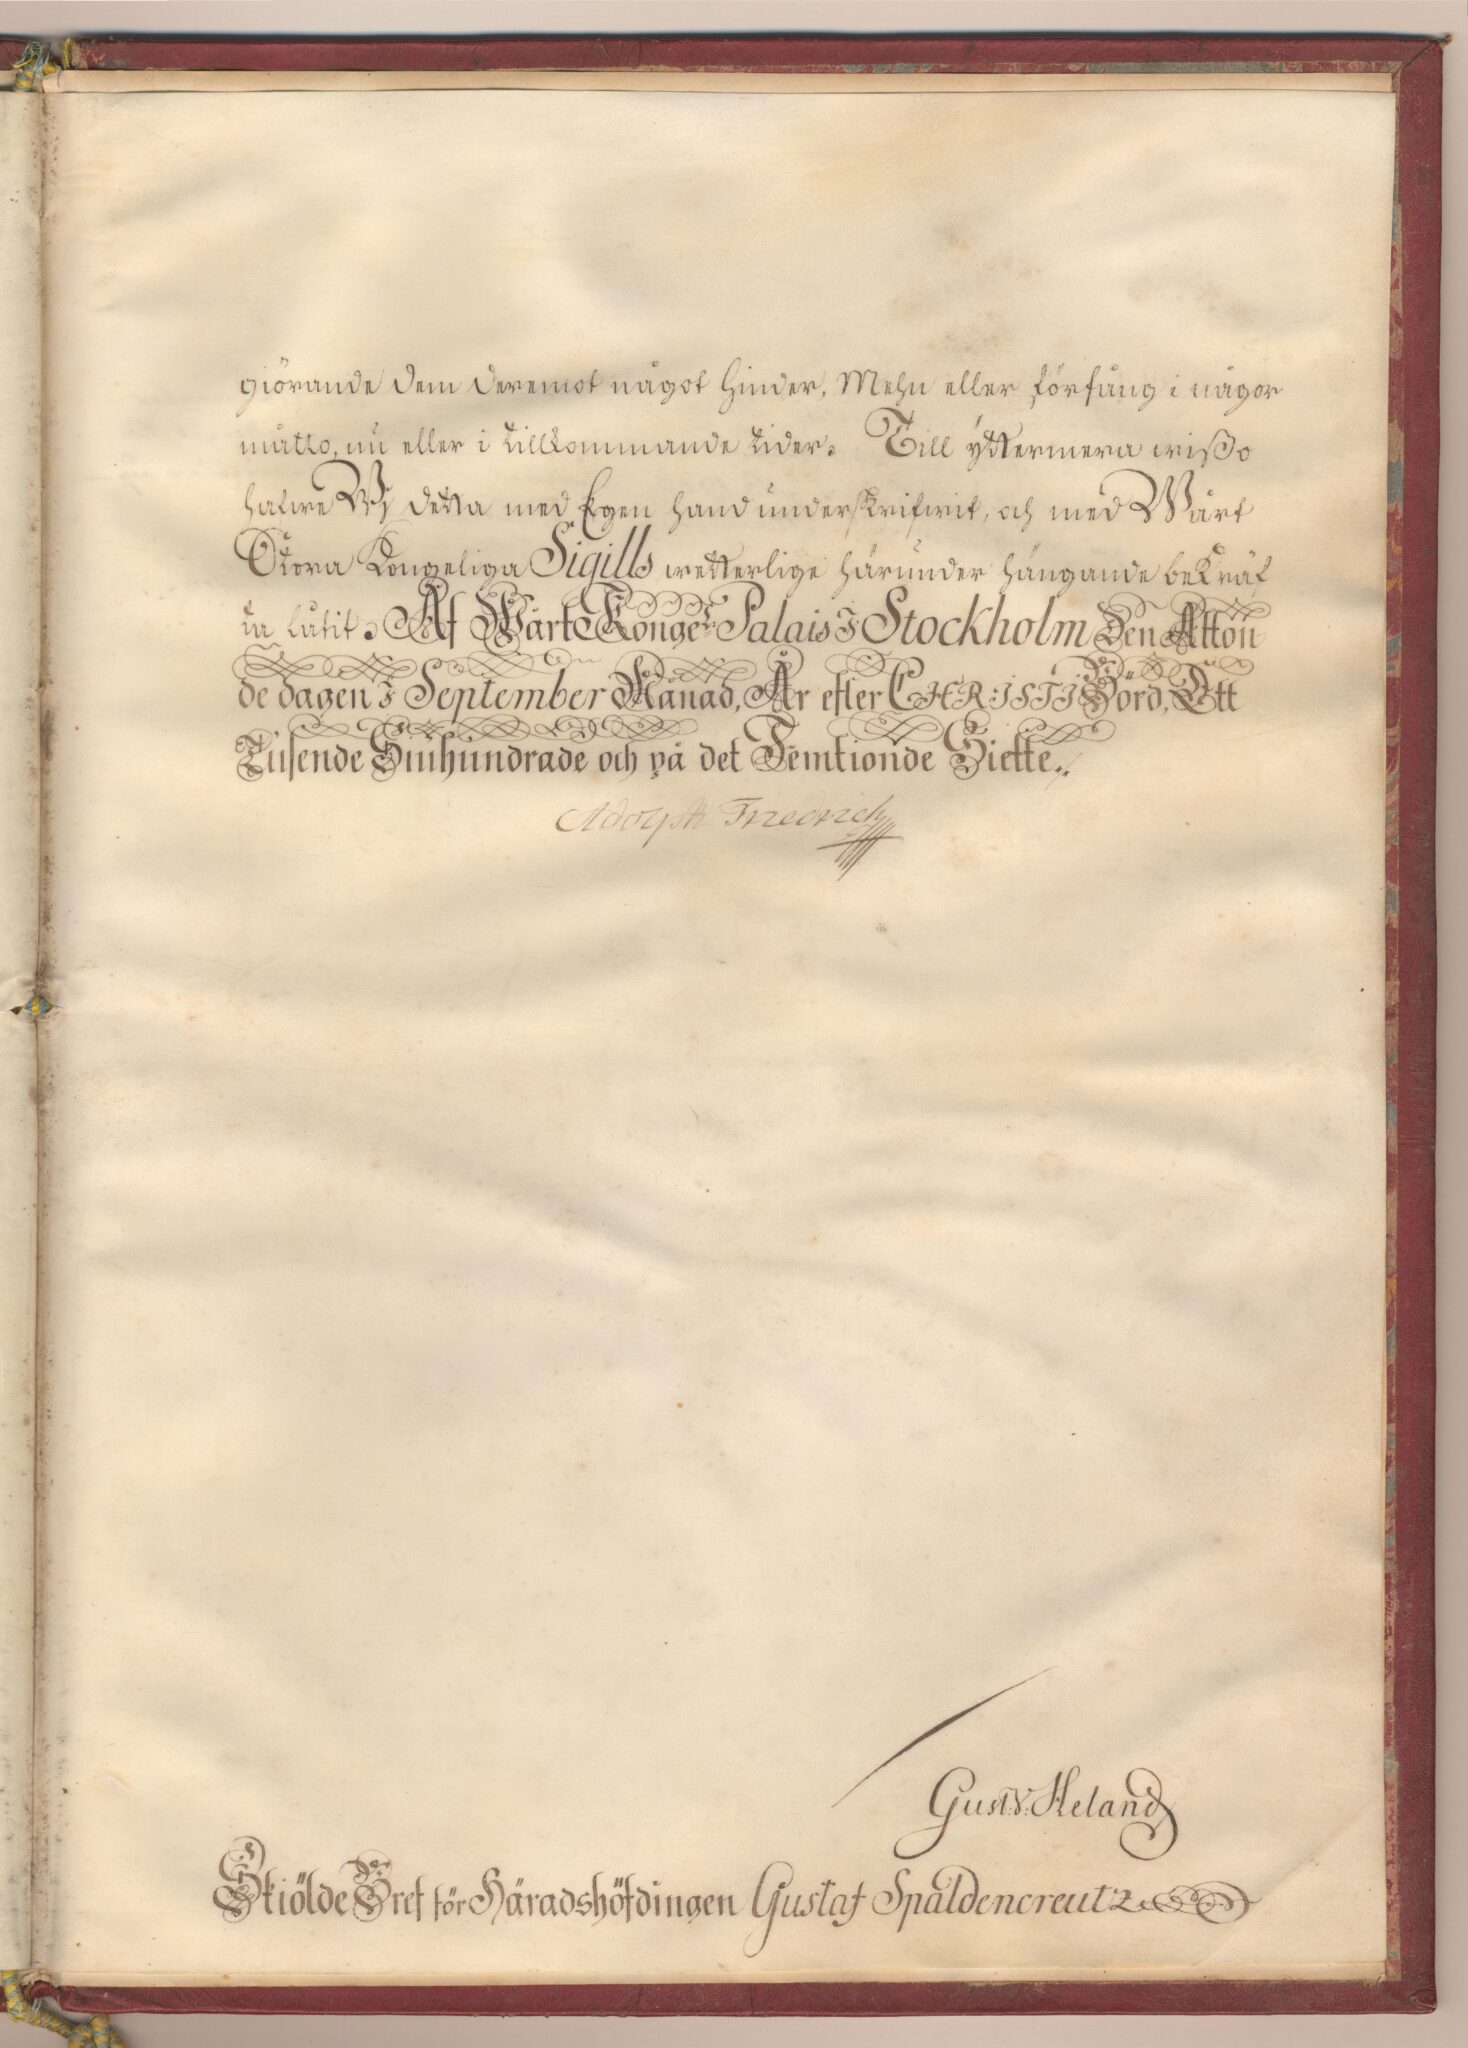 giörande dem deremot något hinder, Mehn eller förfång i någor
måtto, nu eller i tillkommande tider. Till yttermera wißo
hafwe Wj detta med Egen hand underskrifwit, och med Wårt
Stora Kongeliga Sigills wetterlige härunder hängande bekräf
ta låtit. Af Wårt Konge: Palais J Stockholm Den Atton
de dagen J September Månad, År efter CHRISTJ Börd, Ett
Tusende Siuhundrade och på det Femtionde Siette.
Adolph Friedrich
Gust: V: Heland
Skiölde Bref för Häradshöfdingen Gustaf Spaldencreutz